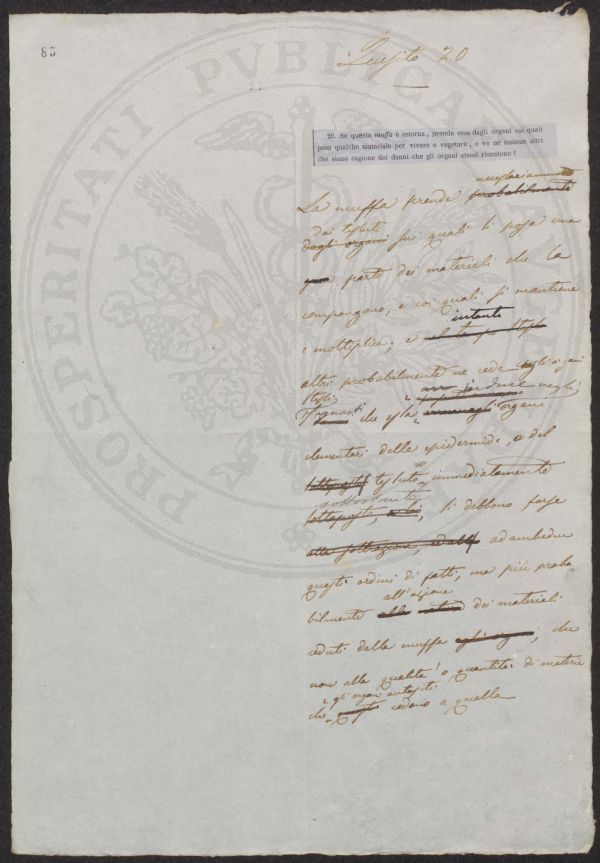 85
Quesito 20
20. Se questa muffa è esterna, prende essa dagli organi sui quali
posa qualche materiale per vivere e vegetare, o ve ne insinua altri
che siano cagione dei danni che gli organi stessi risentono?
La muffa prende probabilmente
dai tessuti
dagli organi sui quali si posa una
parte dei materiali che la
compongono, e coi quali si mantiene
intanto
e moltiplica; e nel tempo stesso
altri probabilmente ne cede agli organi
stessi
I guasti che essa induce negli organi
elementari della epidermide, o del
tessuto immediatamente
sottoposto, si debbono forse
alla sottrazione, ad ambedue
questi ordini di fatti, ma più proba
all'azione
bilmente dei materiali
ceduti dalla muffa agli organi, che
non alla qualità o quantità di materie
gli organi anzidetti
che cedono a quella
PROSPERITATI PUBLICAE